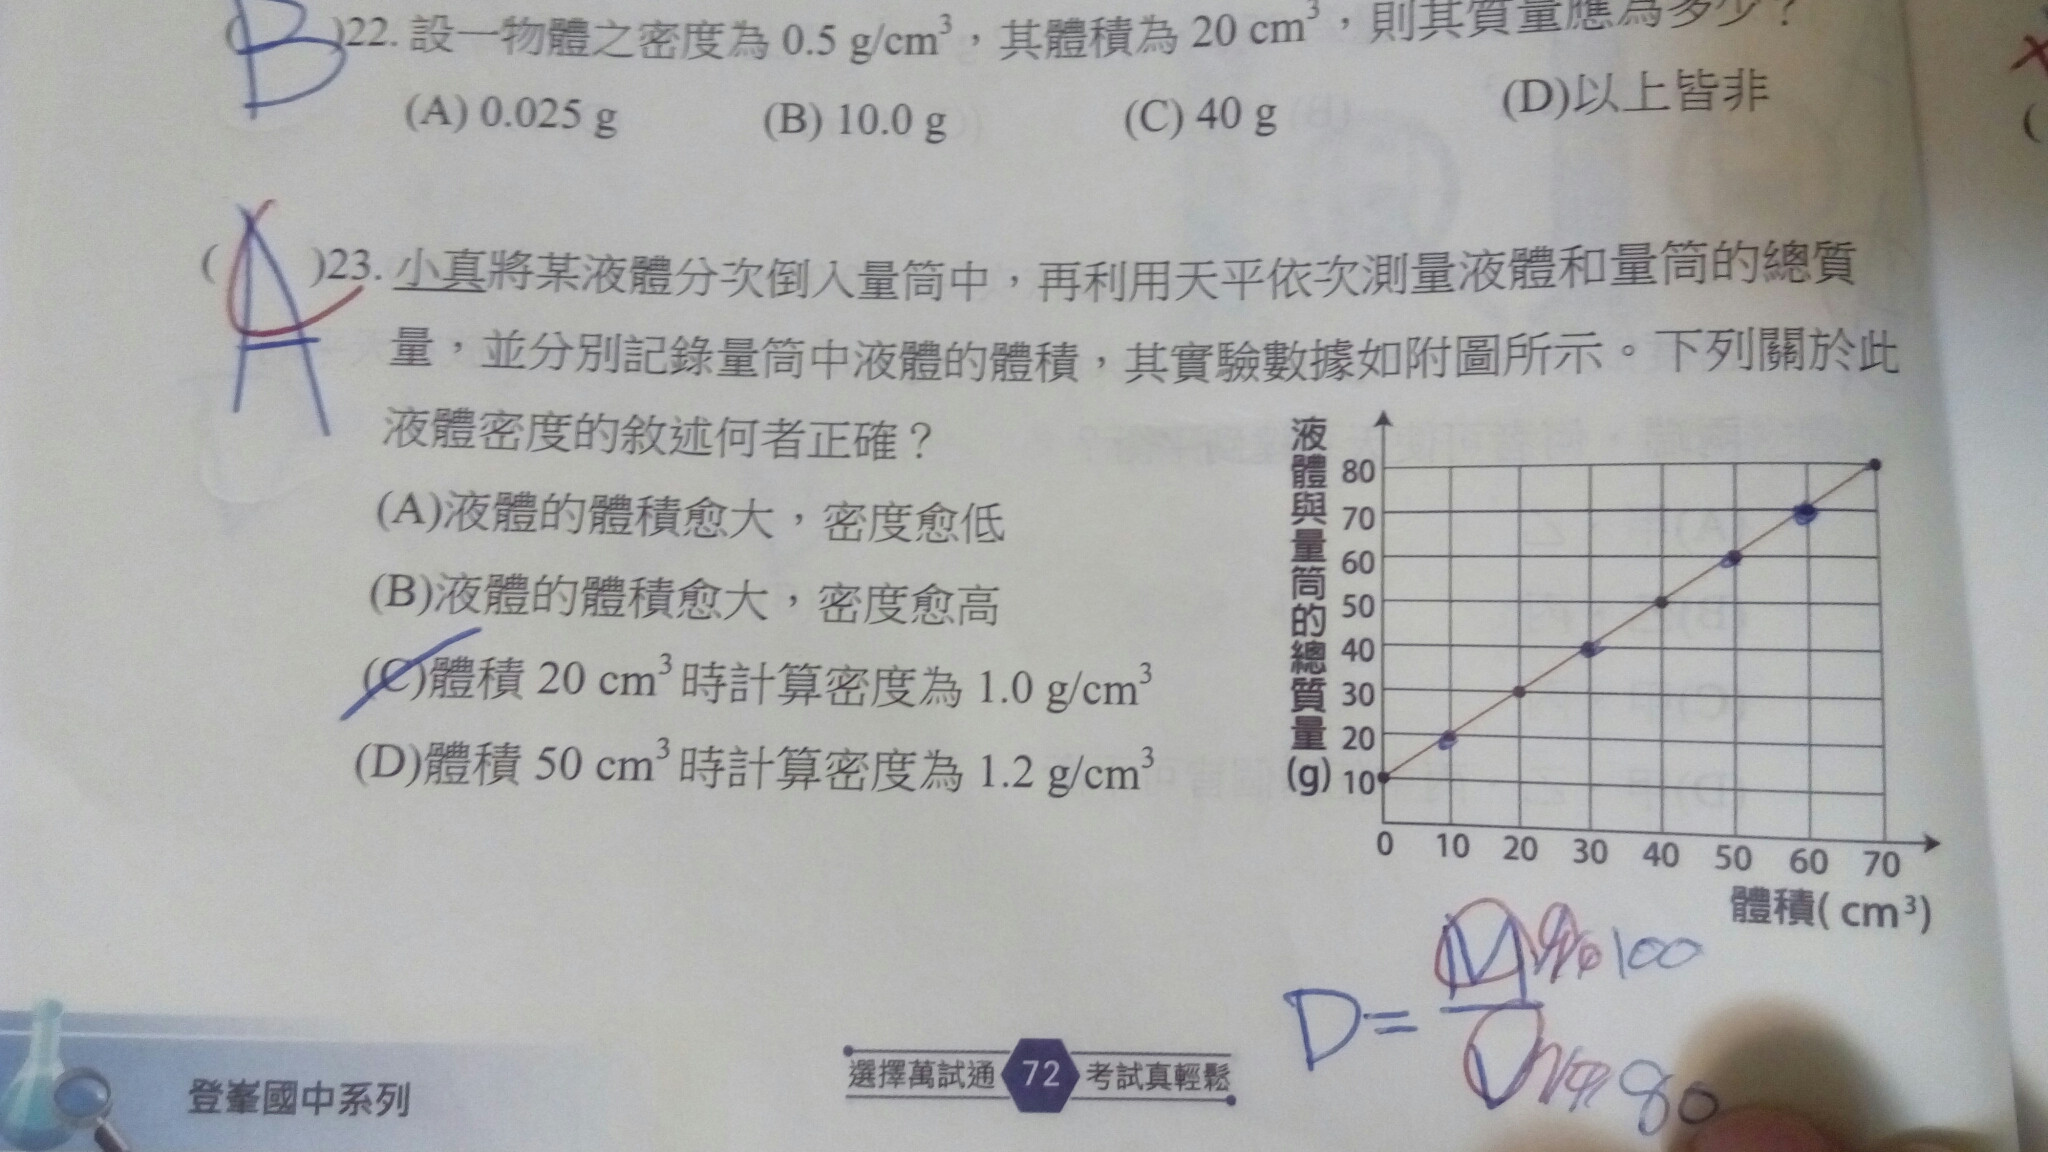 B
( )22. 設一物體之密度為 0.5 g/cm³，其體積為 20 cm³，則其質量應為多少？
(A) 0.025 g (B) 10.0 g (C) 40 g (D)以上皆非
A
( )23. 小真將某液體分次倒入量筒中，再利用天平依次測量液體和量筒的總質
量，並分別記錄量筒中液體的體積，其實驗數據如附圖所示。下列關於此
液體密度的敘述何者正確？
(A)液體的體積愈大，密度愈低
(B)液體的體積愈大，密度愈高
(C)體積 20 cm³ 時計算密度為 1.0 g/cm³
(D)體積 50 cm³ 時計算密度為 1.2 g/cm³
液體與量筒的總質量(g)
80
70
60
50
40
30
20
10
0 10 20 30 40 50 60 70
體積( cm³)
D= M 100
V 80
登峯國中系列
選擇萬試通 72 考試真輕鬆